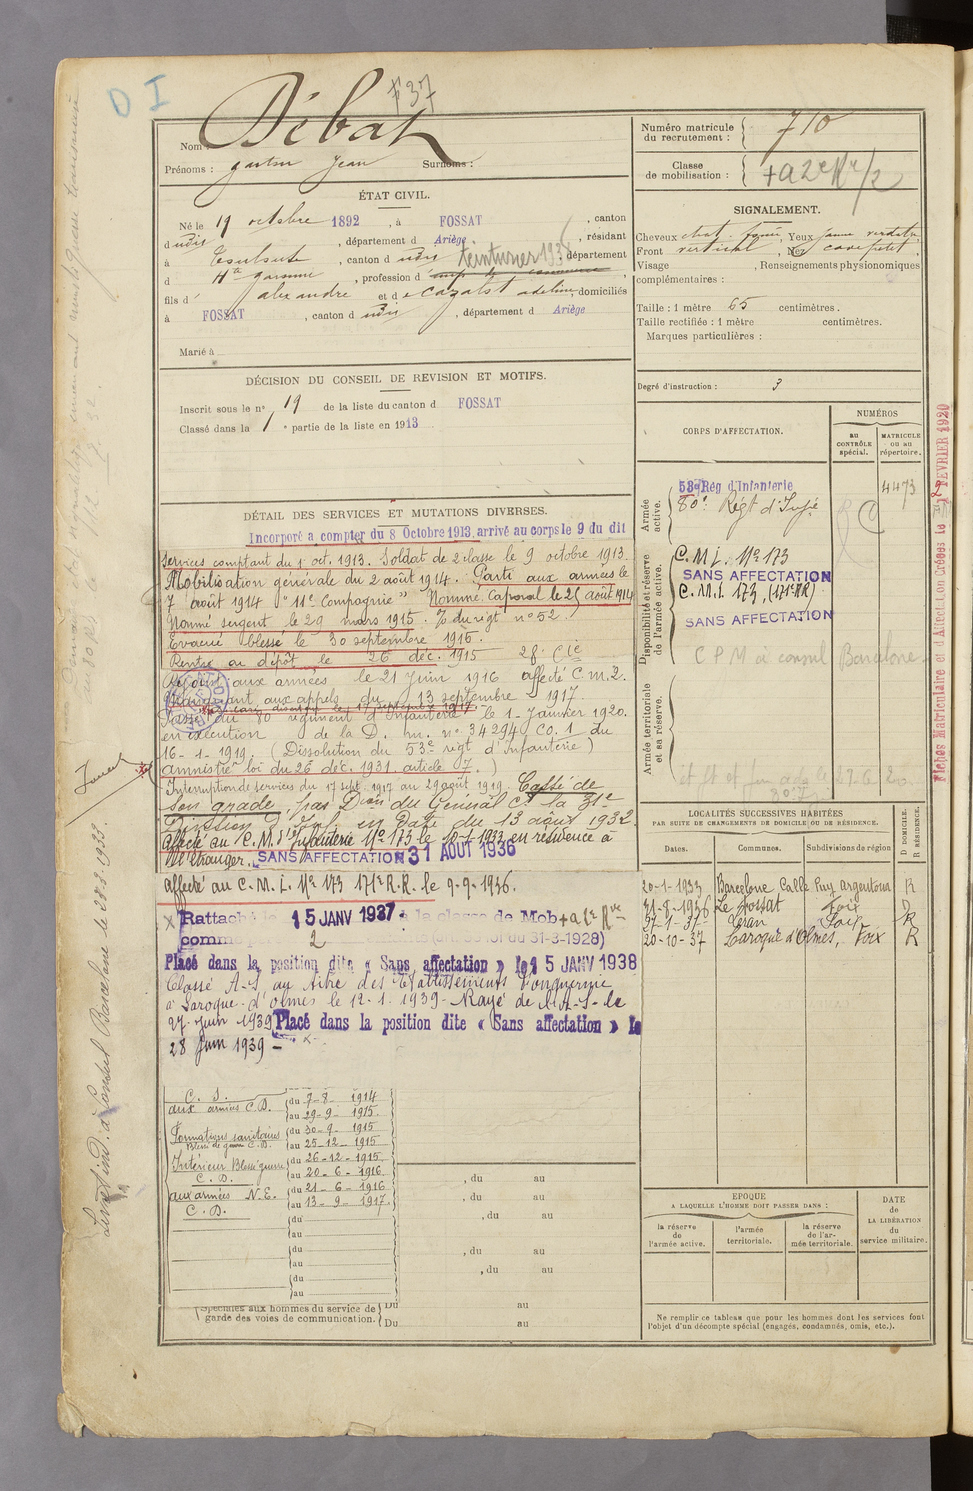 D I
737
Nom : Débat
Prénoms : gaston Jean Surnoms :
ÉTAT CIVIL.
Né le 19 octobre 1892, à FOSSAT, canton
d udit, département d Ariège, résidant
à canton d udit teinturier 193 département
d Hte garonne, profession d emp de commerce
fils d' alexandre et de cazalst adeline, domiciliés
à FOSSAT, canton d udit, département d Ariège
Marié à
DÉCISION DU CONSEIL DE REVISION ET MOTIFS.
Inscrit sous le n° 19 de la liste du canton d FOSSAT
Classé dans la 1e partie de la liste en 1913
DÉTAIL DES SERVICES ET MUTATIONS DIVERSES.
Incorporé a compter du 8 Octobre 1913, arrivé au corps le 9 du dit
Services comptant du 1 oct. 1913. Soldat de 2 classe le 9 octobre 1913.
Mobilisation générale du 2 août 1914. Parti aux armées le
7 août 1914 "11e Compagnie" Nommé Caporal le 25 août 1914
Nommé sergent le 29 mars 1915. O/ du rigt n° 52.
Evacué blessé le 30 septembre 1915.
Rentré au dépôt le 26 déc. 1915 28e Cie
Rejoint aux armées le 21 juin 1916 affecté C.M.2.
Manquant aux appels du 13 septembre 1917.
déserteur le 17 septembre 1917
Passé au 80 régiment d'Infanterie le 1 Janvier 1920.
en exécution de la D. m. n° 34294 CO. 1 du
16-1-1919. (Dissolution du 53e régt d'Infanterie)
amnistié loi du 26 déc. 1931 article 7.)
Interruption de services du 17 sept. 1917 au 29 août 1919. Cassé de
son grade, par Don du Général Ct la 31e
Division d'Inf. en date du 13 août 1932.
affecté au C.M. d'Infanterie N° 173 le 10-1-1933 en résidence à
l'Etranger. SANS AFFECTATION 31 AOUT 1936
affecté au C.M.I. N° 173 171e R.R. le 9-9-1936.
Rattaché le 15 JANV 1937 à la classe de Mob + a 2e Rve
comme 2 du 31-3-1928)
Placé dans la position dite « Sans affectation » le 15 JANV 1938
Classé A-S au titre des Etablissements Fonquernie
à Laroque-d'olmes le 12-1-1939- Rayé de l'A-S- le
27 juin 1939 Placé dans la position dite « Sans affectation » le
28 juin 1939 -
C. S.
aux armées C.D. du 7-8 1914
au 29-9- 1915.
Formations sanitaires du 30-9- 1915
Blessé de guerre C.D. au 25-12-1915
Intérieur Blessé guerre du 26-12-1915.
C. D. au 20-6-1916.
aux armées N.E. du 21-6-1916
C. D. au 13-9-1917.
du
au
du
au
du
au
, du au
, du au
, du au
, du au
, du au
Spéciales aux hommes du service de Du au
garde des voies de communication. Du au
Numéro matricule du recrutement : 710
Classe de mobilisation : + a 2e Rve/2
SIGNALEMENT.
Cheveux chat. foncé, Yeux jaune verdâtre,
Front vertical, Nez cave petit,
Visage , Renseignements physionomiques
complémentaires :
Taille : 1 mètre 65 centimètres.
Taille rectifiée : 1 mètre centimètres.
Marques particulières :
Degré d'instruction : 3
CORPS D'AFFECTATION.
NUMÉROS
au CONTRÔLE spécial.
MATRICULE ou au répertoire.
Armée active.
53e Rég d'Infanterie 4473
80e Régt d'Infie
Disponibilité et réserve de l'armée active.
C.M.I. N° 173
SANS AFFECTATION
C.M.I. 173, (171e RR)
SANS AFFECTATION
C P M à consul Barcelone
Armée territoriale et sa réserve.
LOCALITÉS SUCCESSIVES HABITÉES
PAR SUITE DE CHANGEMENTS DE DOMICILE OU DE RÉSIDENCE.
Dates. Communes. Subdivisions de région D DOMICILE. R RÉSIDENCE.
20-1-1933 Barcelone Calle Puy argentona R
31-8-1936 Le Fossat Foix D
27-1-37- Léran Foix R
20-10-37 Laroque d'Olmes, Foix R
EPOQUE
A LAQUELLE L'HOMME DOIT PASSER DANS :
la réserve de l'armée active.
l'armée territoriale.
la réserve de l'armée territoriale.
DATE de LA LIBÉRATION du service militaire.
Ne remplir ce tableau que pour les hommes dont les services font
l'objet d'un décompte spécial (engagés, condamnés, omis, etc.).
Fiches Matriculaire et d'Affectation Créées le 2 FEVRIER 1920
Barcelone le 28.2.1933.